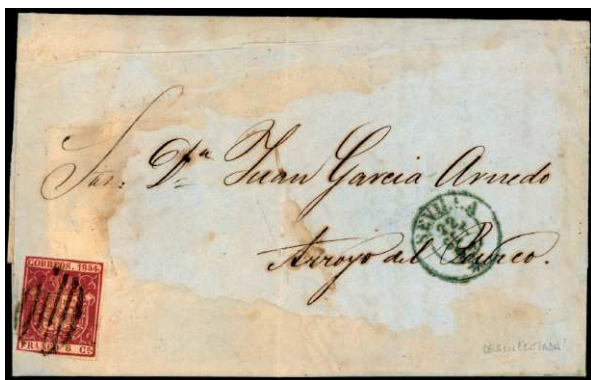 Sor. Dn. Juan Garcia Arnedo
Arroyo del Puerco.
SEVILLA
22
CORREOS. 1854.
FRANCO 6 Cs
DESINFECTADA